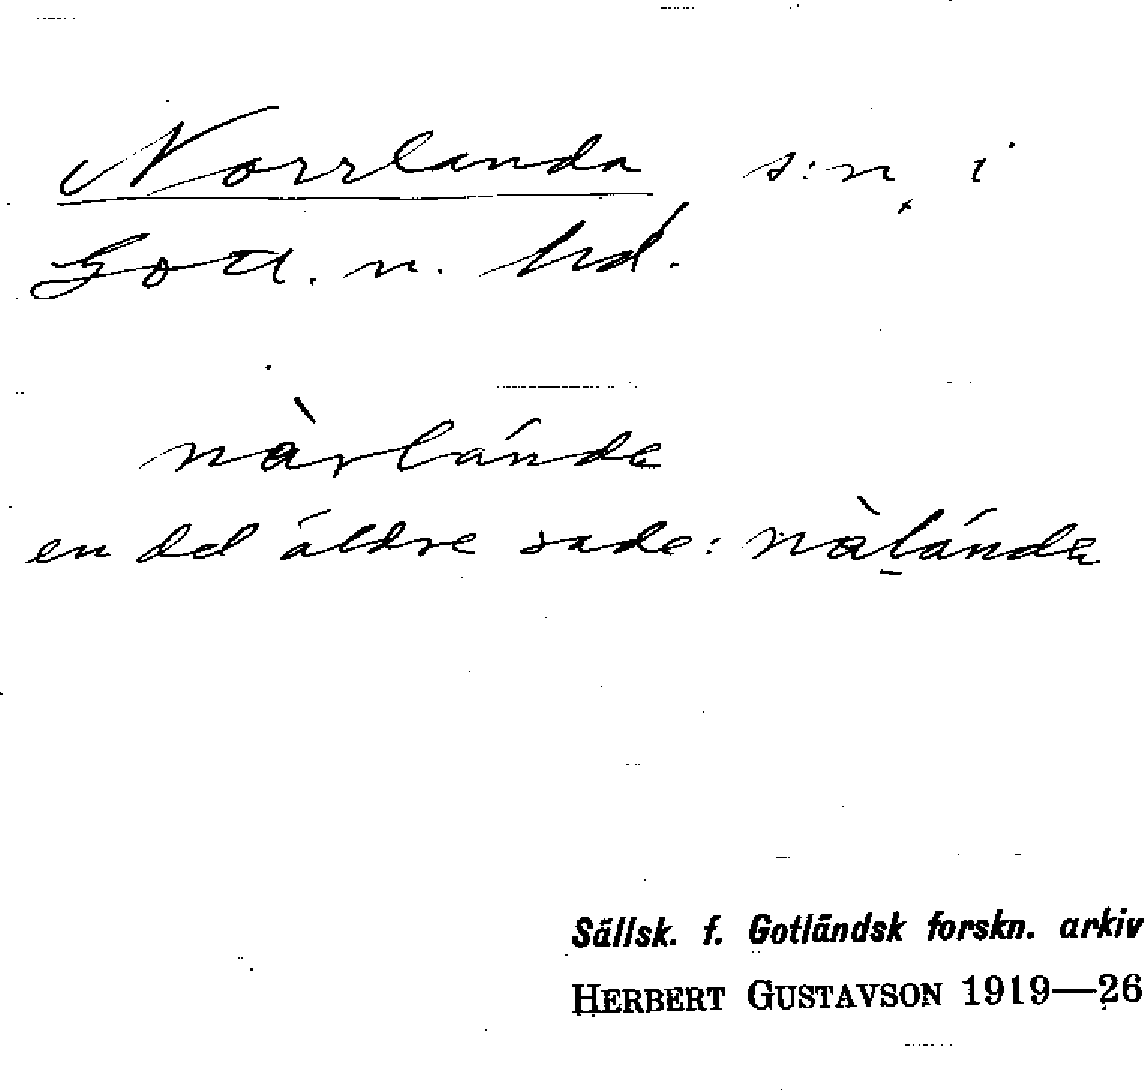 Norrlanda s:n, i
Gotl. n. hd.
nàrlánda
en del äldre sade: nàḻánda
Sällsk. f. Gotländsk forskn. arkiv
HERBERT GUSTAVSON 1919—26